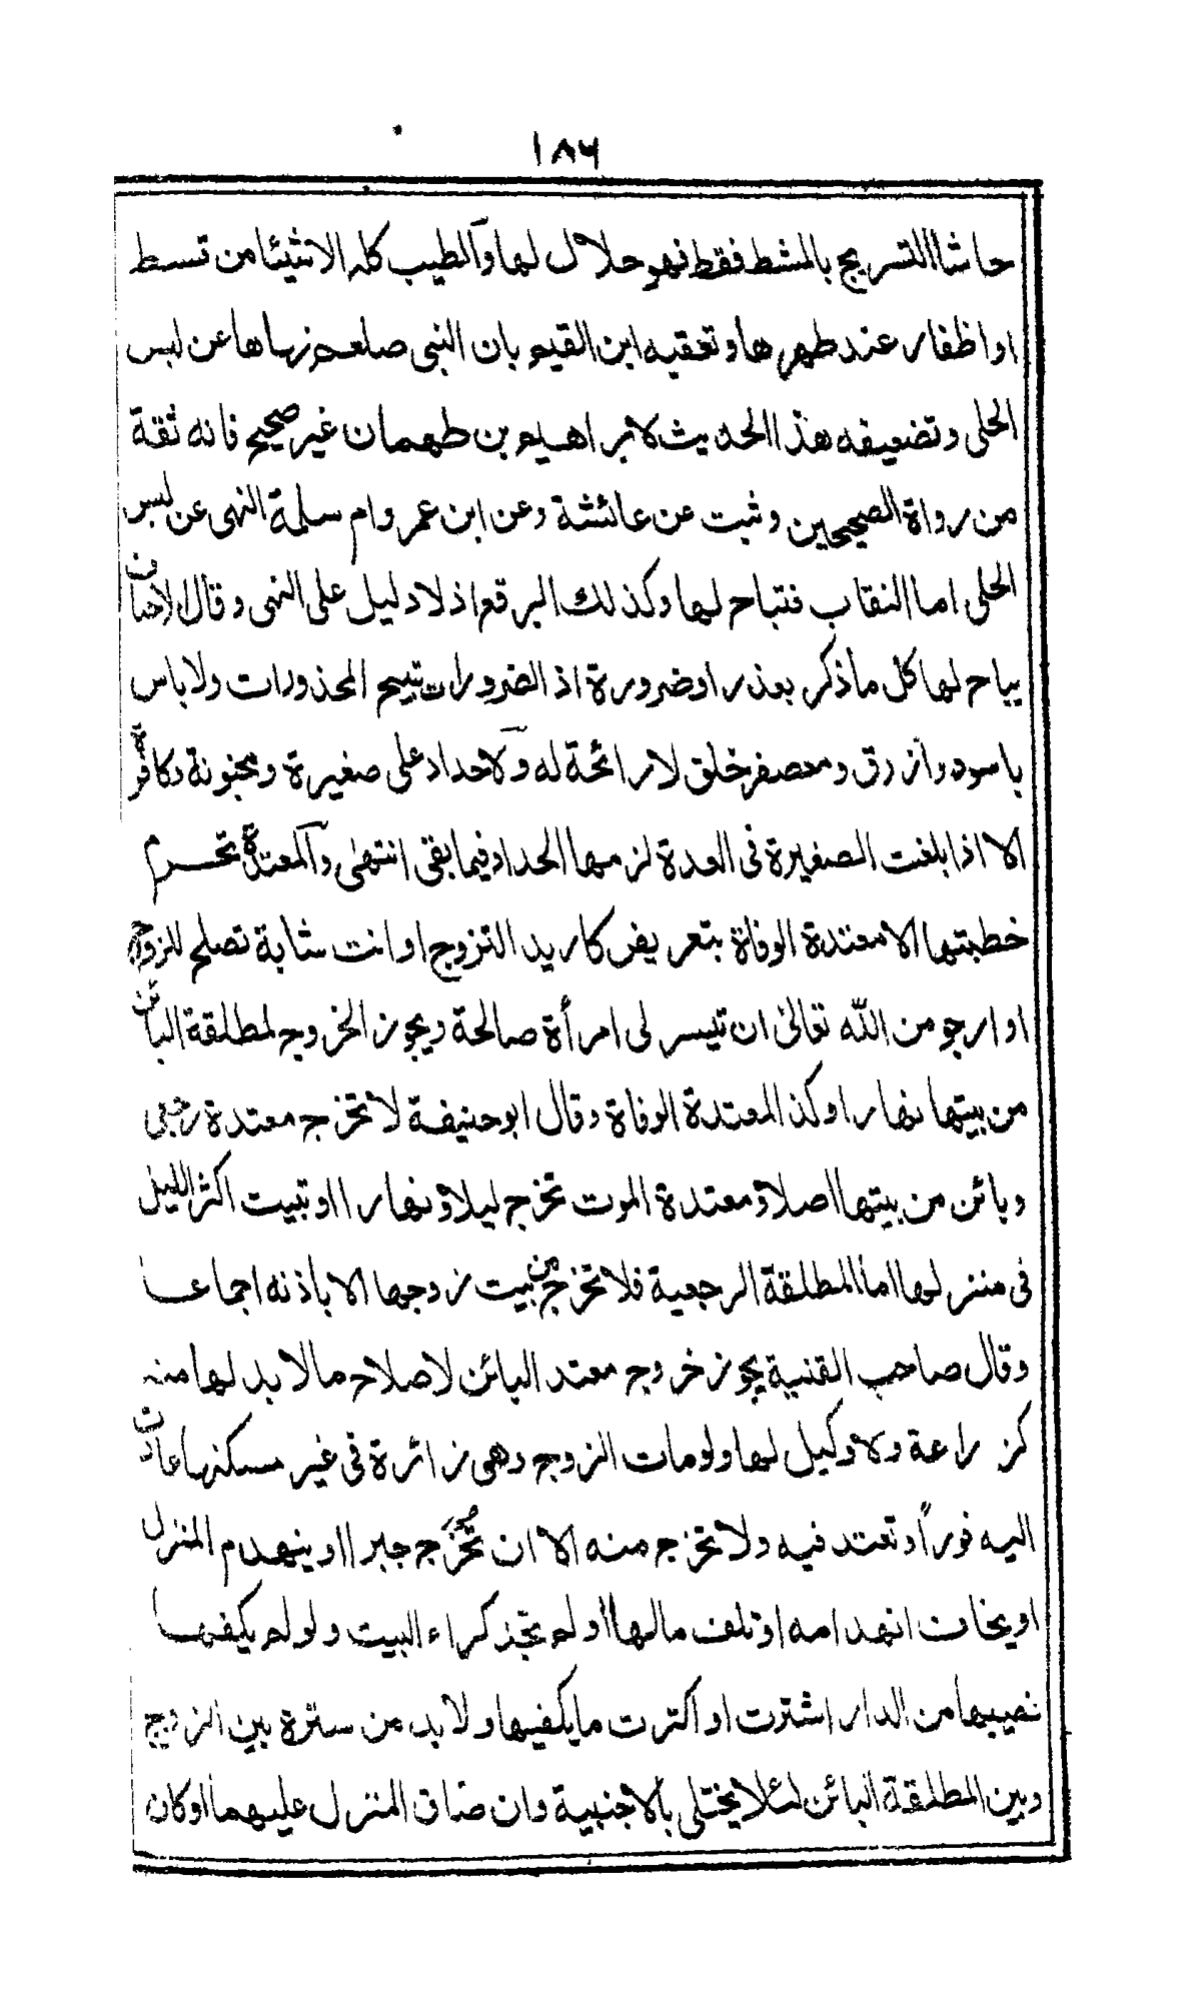 ١٨٦
حاشا التسريج بالمشط فقط فهو حلال لها والطيب كله الا شيئا من قسط
او اظفار عند طهرها وتعقبه ابن القيم بان النبى صلعم نهاها عن لبس
الحلى وتضعيفه هذا الحديث لابراهيم بن طهمان غير صحيح فانه ثقة
من رواة الصحيحين وثبت عن عائشة وعن ابن عمر وام سلمة النهى عن لبس
الحلى اما النقاب فتباح لها وكذلك البرقع اذ لا دليل على النهى وقال الاحناف
يباح لها كل ما ذكر بعذر او ضرورة اذ الضرورات تبيح المحذورات ولا باس
باسود وازرق ومعصفر خلق لا رائحة له ولا حداد على صغيرة ومجنونة وكافرة
الا اذا بلغت الصغيرة فى العدة لزمها الحداد فيما بقى انتهىٰ والمعتدة تحرم
خطبتها الا معتدة الوفاة بتعريض كاريد التزوج او انت شابة تصلح للزوج
او ارجو من الله تعالىٰ ان تيسر لى امرأة صالحة ويجوز الخروج لمطلقة البائن
من بيتها نهارا وكذا المعتدة الوفاة وقال ابو حنيفة لا تخرج معتدة رجعى
وبائن من بيتها اصلا ومعتدة الموت تخرج ليلا ونهارا او تبيت اكثر الليل
فى منزلها اما المطلقة الرجعية فلا تخرج من بيت زوجها الا باذنه اجماعا
وقال صاحب القنية يجوز خروج معتد البائن لاصلاح ما لا بد لها منه
كزراعة ولا وكيل لها ولو مات الزوج وهى زائرة فى غير مسكنها عادت
اليه فوراً وتعتد فيه ولا تخرج منه الا ان تُخرَج جبرا او ينهدم المنزل
او يخاف انهدامه او تلف مالها او لم تجد كراء البيت ولو لم يكفها
نصيبها من الدار اشترت او اكترت ما يكفيها ولا بد من سترة بين الزوج
وبين المطلقة البائن لئلا يختلى بالاجنبية وان ضاق المنزل عليهما او كان